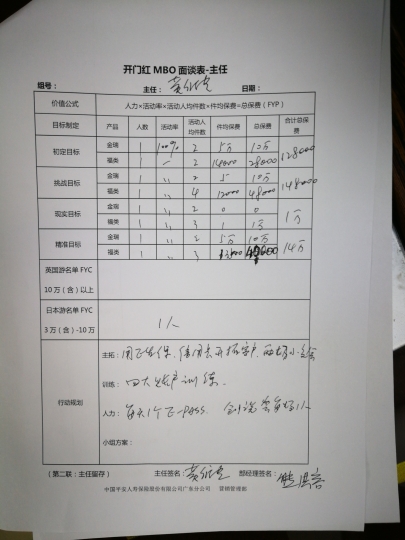 开门红 MBO 面谈表-主任
组号： 主任： 日期：
价值公式 人力×活动率×活动人均件数×件均保费=总保费（FYP）
目标制定 产品 人数 活动率 活动人均件数 件均保费 总保费 合计总保费
初定目标 金瑞 1 100% 2 5万 10万 128000
福类 1 — 2 14000 28000
挑战目标 金瑞 1 〃 2 5 10万 148000
福类 1 〃 4 12000 48000
现实目标 金瑞 1 〃 2 0 0 1万
福类 1 〃 3 1 1万
精准目标 金瑞 1 〃 2 5万 10万 14万
福类 1 〃 3
英国游名单 FYC
10 万（含）以上
日本游名单 FYC
3 万（含）-10 万
1人
行动规划
主拓：
训练：四大 训练.
人力：每天1个E-PASS.
小组方案：
（第二联：主任留存） 主任签名： 部经理签名：
中国平安人寿保险股份有限公司广东分公司 营销管理部